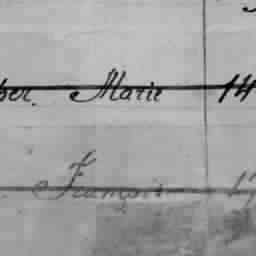 ber. Marie 14
François 17